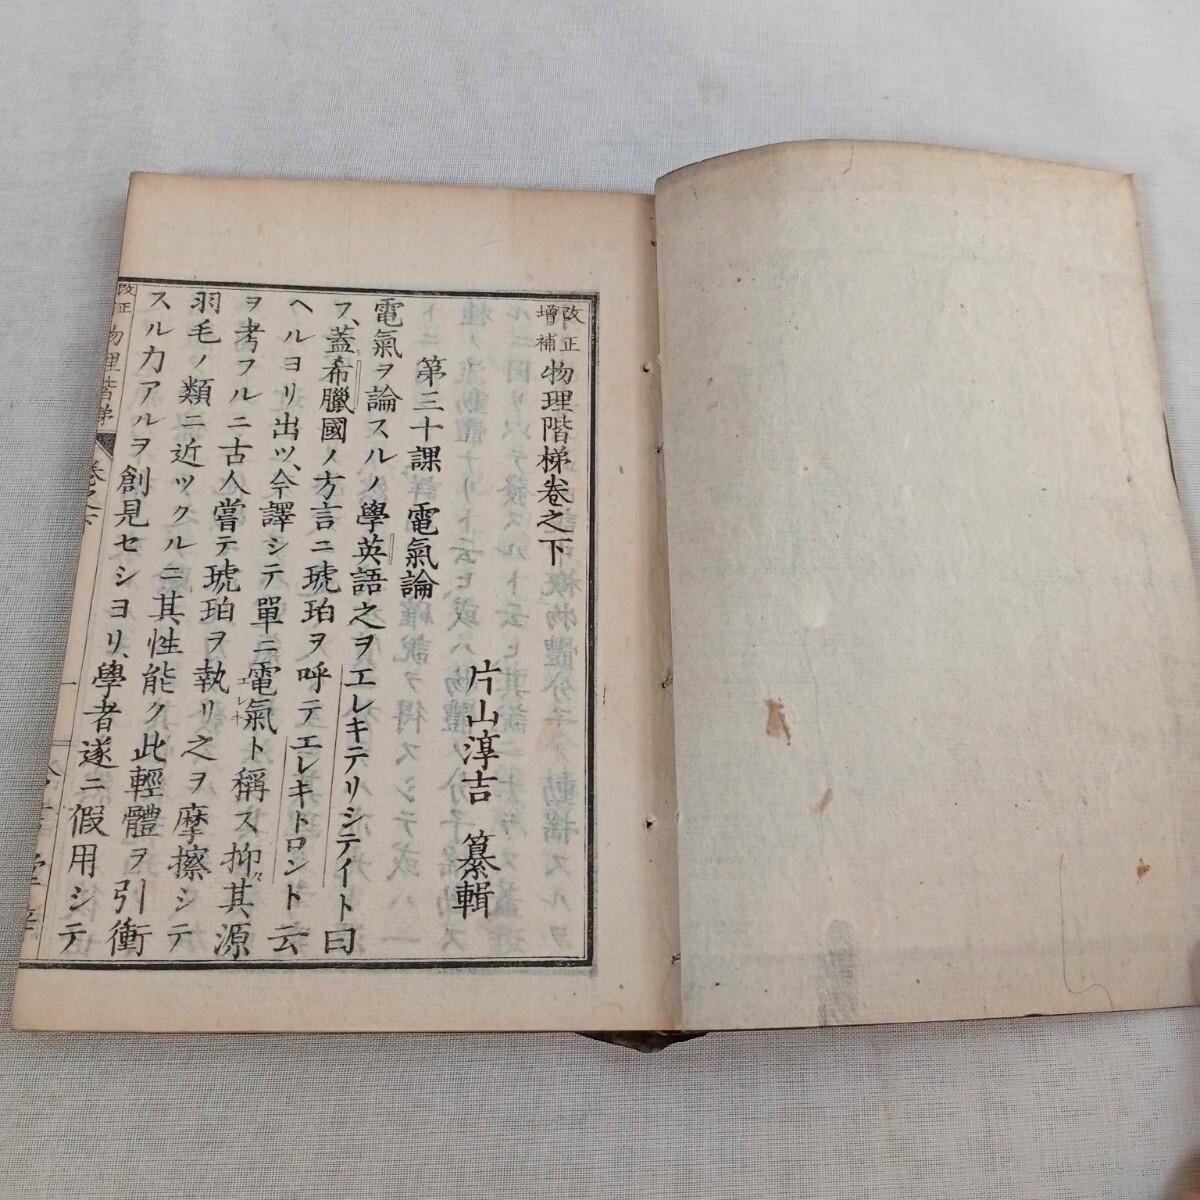 改正增補物理階梯卷之下
片山淳吉 纂輯
第三十課 電氣論
電氣ヲ論スルノ學英語之ヲエレキテリシテイト曰
フ、蓋希臘國ノ方言ニ琥珀ヲ呼テエレキトロント云
ヘルヨリ出ツ、今譯シテ單ニ電氣ト稱ス抑々其源
ヲ考フルニ古人嘗テ琥珀ヲ執リ之ヲ摩擦シテ
羽毛ノ類ニ近ツクルニ其性能ク此輕體ヲ引衝
スル力アルヲ創見セシヨリ、學者遂ニ假用シテ
改正 物理階梯 卷之下 一